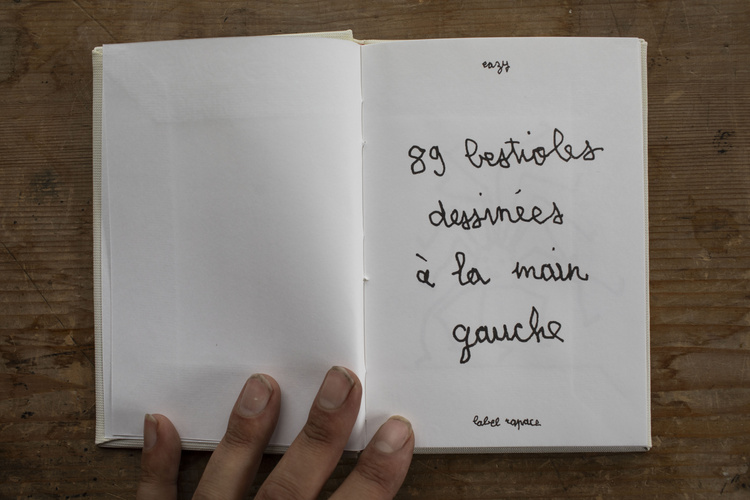 eazy
89 bestioles
dessinées
à la main
gauche
label rapace